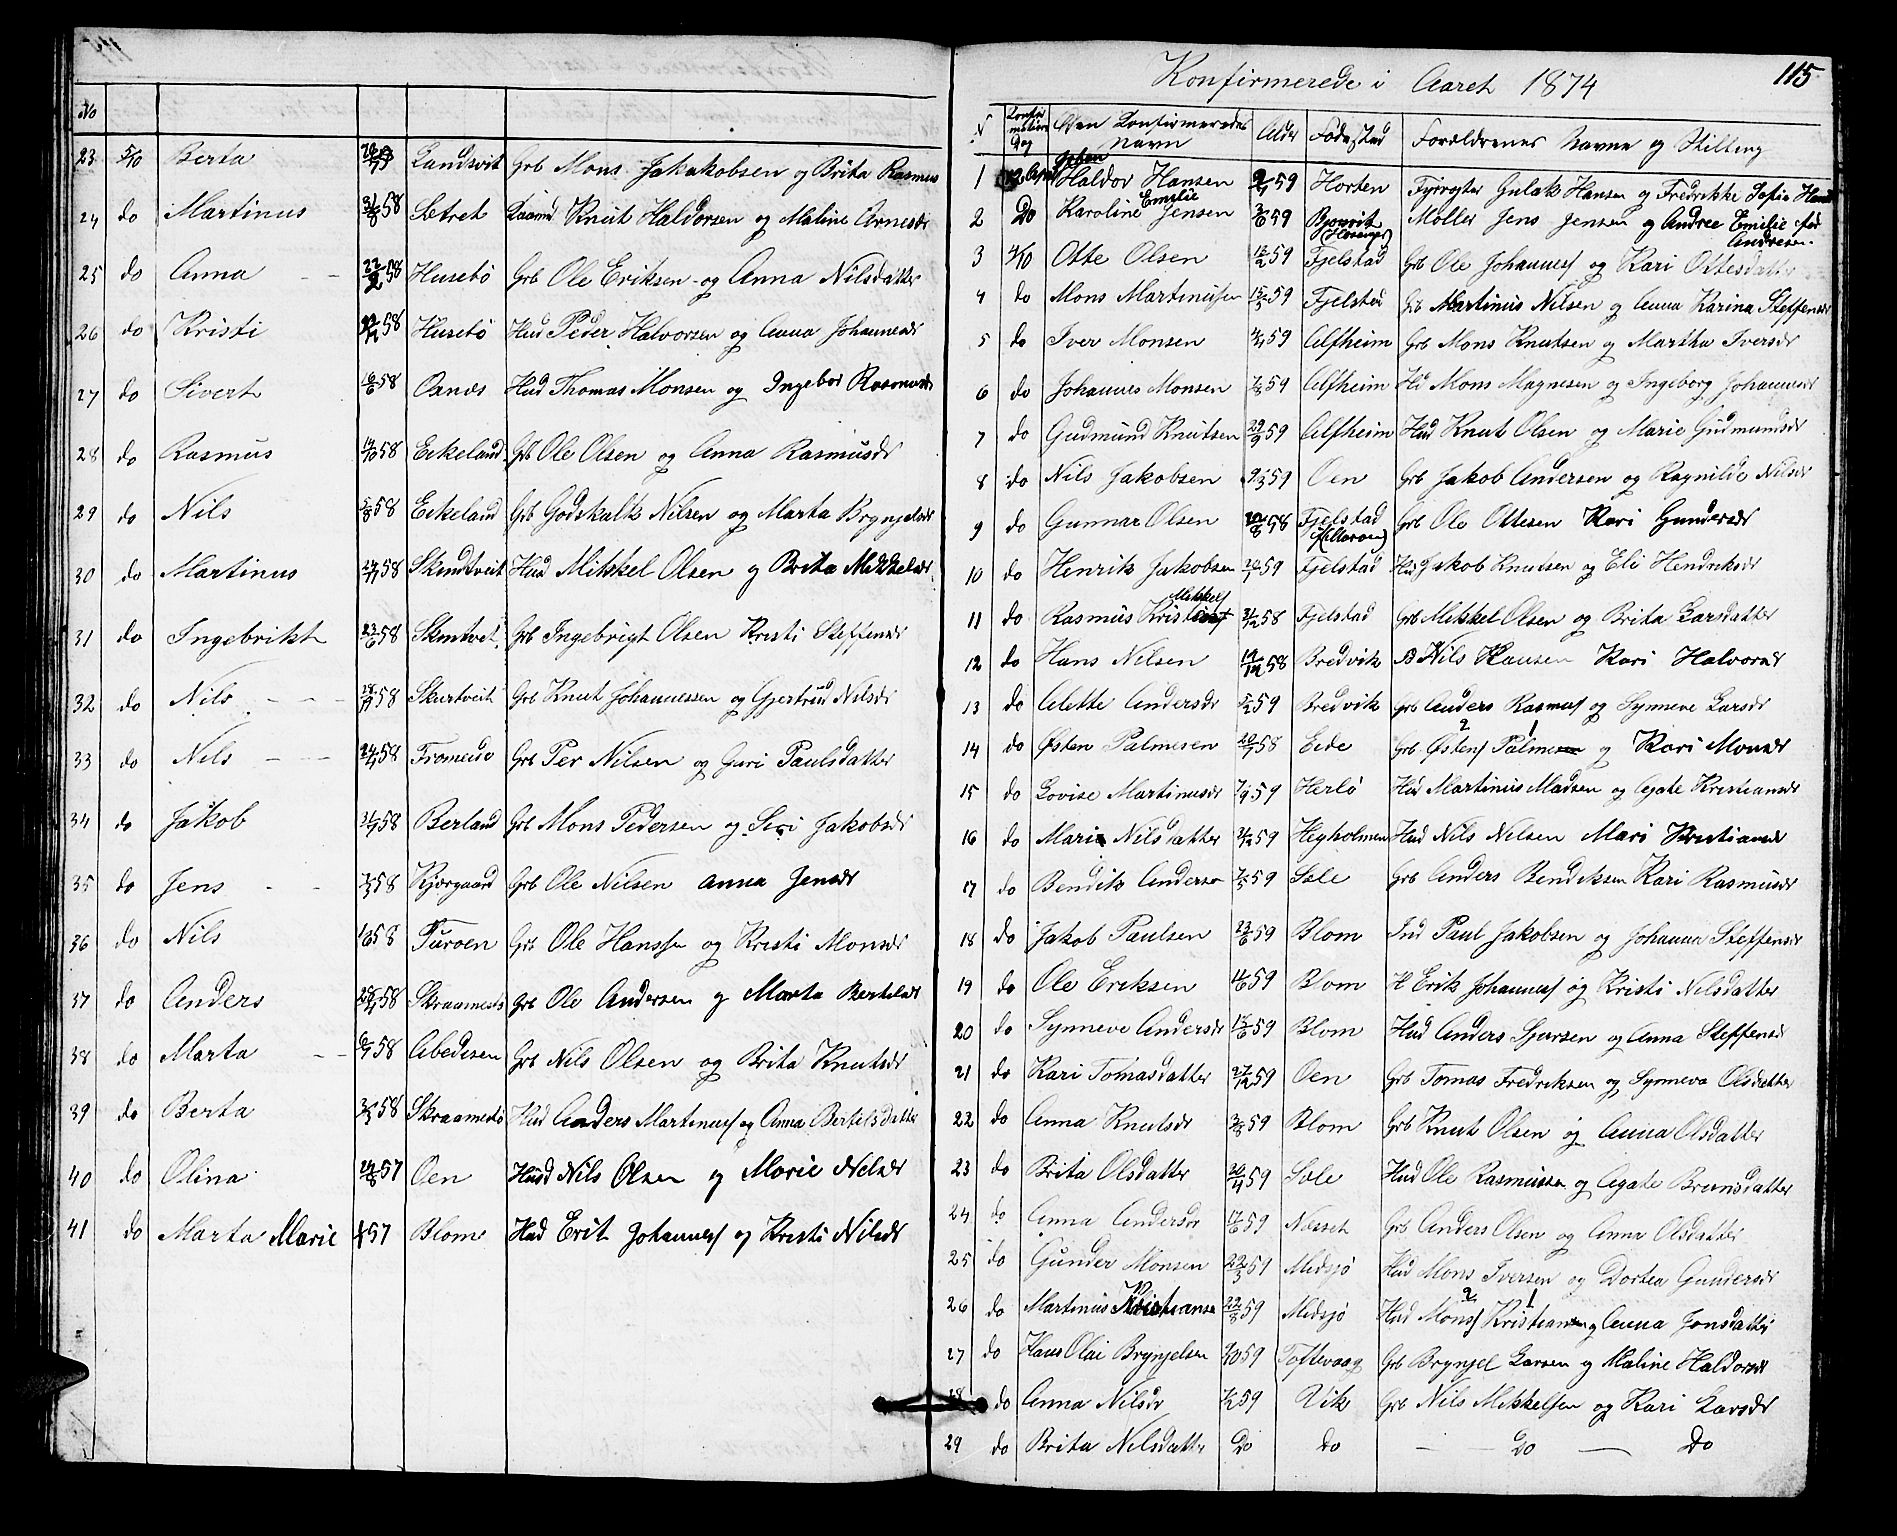 No
23 5/10 Berta Landsvik Grb Mons Jakakobsen og Brita Rasmus
24 do Martinus 31/8 58 Setret Knut Haldorsen og Maline Arnesdr
25 do Anna 58 Husebö Grb Ole Eriksen og Anna Nilsdatter
26 do Kristi 58 Husebö Hud Peder Halvorsen og Anna Johannesdr
27 do Sivert 58 Oanes Hud Thomas Monsen og Ingebor Rasmusdr
28 do Rasmus 14/10 58 Eekeland Grb Ole Olsen og Anna Rasmusdr
29 do Nils 5/8 58 Eekeland Grb Godskalk Nilsen og Marta Brynjelsdr
30 do Martinus 58 Skudtveit Hud Mikkel Olsen og Brita Mikkelsdr
31 do Ingebrikt 23/6 58 Skutvet Grb Ingebrigt Olsen Kristi Steffensdr
32 do Nils 58 Skurtveit Grb Knut Johannessen og Gjertrud Nilsdr
33 do Nils 58 Fromeide Grb Per Nilsen og Guri Paulsdatter
34 do Jakob 58 Berland Grb Mons Pedersen og Siri Jakobsdr
35 do Jens 58 Kjærgaard Grb Ole Nilsen Anna Jensdr
36 do Nils 58 Turoen Grb Ole Hansen og Kristi Monsdr
37 do Anders 58 Skraamestö Grb Ole Andersen og Marta Bertelsdr
38 do Marta 58 Abedisen Grb Nils Olsen og Brita Knutsdr
39 do Berta 58 Skraamestö Hud Anders Martinus og Anna Bertelsdatter
40 do Olina 57 Oen Husd Nils Olsen og Marie Nelsdr
41 do Marta Marie 57 Blom Hud Erik Johannes og Kristi Nilsdr
Konfirmerede i Aaret 1874
115
N Konfirmations Dag Den Konfirmeredes Navn Alder Fødested Forældrenes Navne og Stilling
Johan
1 Haldor Hansen 59 Horten Fyrvogter Gulak Hansen og Fredrikke Sofie
Emilie
2 Do Karoline Jensen 59 Møller Jens Jensen og Andree Emilie før
Andresen
3 4/10 Otte Olsen 12/2 59 Fjelstad Grb Ole Johannes og Kari Ottesdatter
4 do Mons Martinusen 59 Fjelstad Grb Martinus Nilsen og Anna Karina Steffensdr
5 do Iver Monsen 59 Alfheim Grb Mons Knutsen og Martha Iversdr
6 do Johannes Monsen 59 Alfheim Hd Mons Magnesen og Ingeborg Johannesdr
7 do Gudmund Knutsen 29/9 59 Alfheim Hud Knut Olsen og Marie Gudmundsdr
8 do Nils Jakobsen 9/3 59 Oen Grb Jakob Andersen og Ragnilde Nilsdr
9 do Gunnar Olsen 58 Fjelstad Grb Ole Ottesen Kari Gundersdr
10 do Henrik Jakobsen 59 Fjelstad Hud Jakob Knutsen og Eli Hendriksdr
Mikkels
11 do Rasmus 31/12 58 Fjelstad Grb Mikkel Olsen og Brita Larsdatter
12 do Hans Nilsen 58 Bredvik Nils Hansen Kari Halvorsdr
13 do Alette Andersdr 59 Bredvik Grb Anders Rasmus og Synneve Larsdr
2 1
14 do Østen Palmesen 58 Eide Grb Østens Palmesen og Kari Monsdr
15 do Lovise Martinusdr 7/9 59 Herlö Hud Martinus Madsen og Agate Kristiansdr
16 do Marie Nilsdatter 59 Hegholmen Hud Nils Nilsen Mari Kristiansdr
17 do Bendik Anderse 59 Sæle Grb Anders Bendiksen Kari Rasmusdr
18 do Jakob Paulsen 23/6 59 Blom Ind Paul Jakobsen og Johanna Steffensdr
19 do Ole Eriksen 59 Blom H Erik Johannes og Kristi Nilsdatter
20 do Synneve Andersdr 59 Blom Hud Anders Sjursen og Anna Steffensdr
21 do Kari Tomasdatter 27/12 59 Oen Grb Tomas Fredriksen og Synneva Olsdatter
22 do Anna Knutsdr 59 Blom Grb Knut Olsen og Anna Olsdatter
23 do Brita Olsdatter 59 Sæle Hud Ole Rasmussen og Agate Brunsdatter
24 do Anna Andersdr 59 Nesset Grb Anders Olsen og Anna Olsdatter
25 do Gunder Monsen 22/3 59 Midsjø Hud Mons Iversen og Dortea Gundersdr
2 1
26 do Martinus Kristianse 22/8 59 Midsjø Hud Mons Kristiansen og Anna Jonsdatter
27 do Hans Olai Brynjelsen 59 Toftevaag Grb Brynjel Larsen og Maline Haldorsdr
28 do Anna Nilsdr 59 Vik Grb Nils Mikkelsen og Kari Larsdr
29 do Brita Nilsdatter Do do — Do — Do